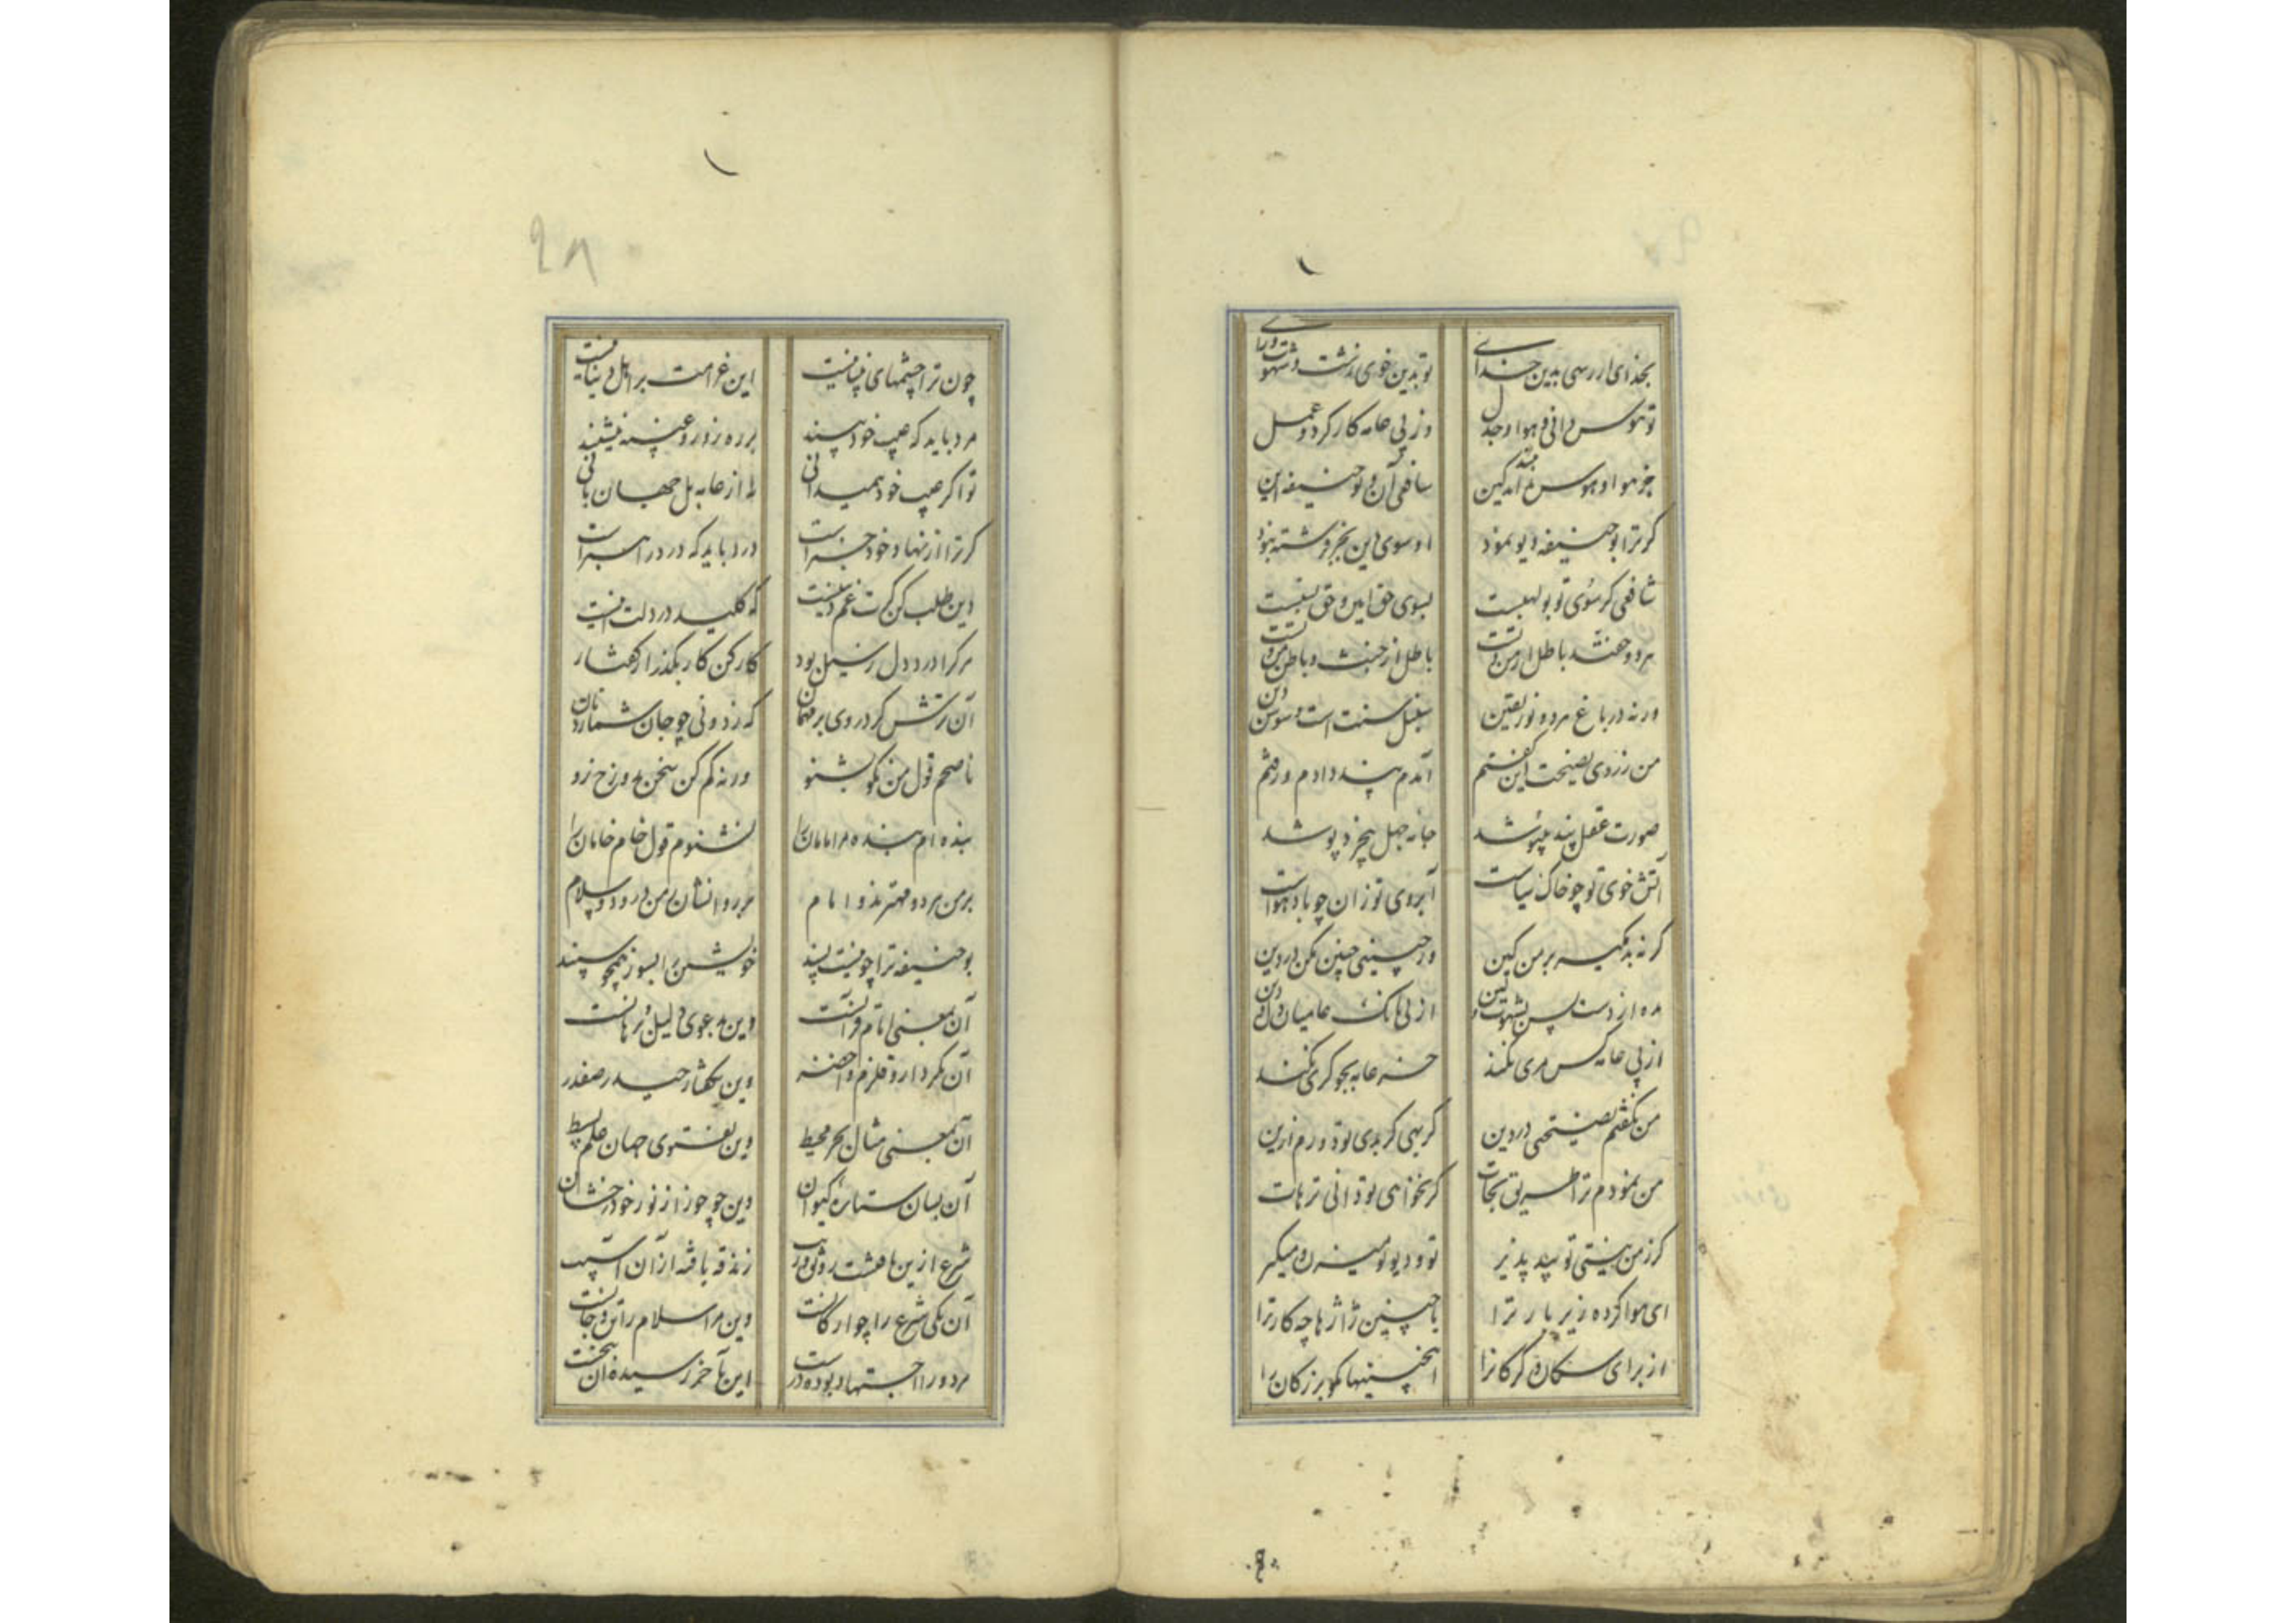 بخدای ار رسی بدین خدای
تو بدین خوی زشت و شهوت و رای
تو هوس دانی و هوا و جدل
وز پی عامه کار کرد و عمل
جز هوا و هوس
شافعی آن و بوحنیفه این
گر ترا بوحنیفه دیو نمود
او سوی این بجز فرشته نبود
شافعی گر سوی تو بولهبست
بسوی حق امین و حق نسبست
هر دو حقند باطل از من و تست
ورنه در باغ هر دو نور یقین
سنبل سنت است و سوسن دین
من ز روی نصیحت این گفتم
آمدم پند دادم و رفتم
صورت عقل پند نیوشد
جانه جهل بیخرد پوشد
آتش خوی تو چو خاک سیاست
آبروی تو زان چو باد هواست
گر نه بر من کین
ور چنینی چنین مکن در دین
از پی بانگ عامیان دل و دین
از پی عامه کس مری نکند
خر عامه بجو کری نکند
من نگفتم نصیحتی در دین
گر بهی گر بدی تو دورم ازین
من نمودم ترا طریق نجات
گر نخواهی تو دانی ترهات
گر ز من نیستی تو پند پذیر
تو و دیو تو نیزه میگیر
ای هوا کرده زیر بار ترا
با چنین ژاژها چه کار ترا
از برای سگان و گرگانرا
اینچنینها مگو بزرگان را
چون ترا چشمهای بینا نیست
این غرامت بر اهل دنیا نیست
مرد باید که عیب خود بیند
بر ره زور و غیبه ننشیند
تو اگر عیب خود همیدانی
نه از عامه بل جهان بانی
گر ترا از نهاد خود خبر است
درد باید که درد راهبر است
دین طلب کن گرت غم دینست
که کلید در دلت اینست
هر کرا درد دل رسیل بود
کار کن کار بگذر از گفتار
آن
که ز دونی چو جان شمارد نان
ناصحم قول من نکو بشنو
ورنه کم کن سخن بدوزخ رو
بنده ام بنده مر امامان را
نشنوم قول خام خامان را
بر من هر دو مهترند و امام
هر دو انشان ز من درود و سلام
بوحنیفه ترا چو نیست پسند
خویشتن را بسوز همچو سپند
آن بمعنی امام قرآنست
وین بدعوی دلیل و برهانست
آن بکردار و قلزم
وین بگفتار حیدر صفدر
آن بمعنی مثال بحر محیط
وین بفتوی جهان علم بسیط
آن بسان ستاره کیوان
وین چو خور از نور خود رخشان
شرع ازین یافت رونق و ترتیب
زندقه یافته از آن آسیب
آن یکی شرع را چو ارکانست
وین مر اسلام را تن و جانست
مرد و را اجتهاد بوده درست
این بآخر رسیده آن بنخست